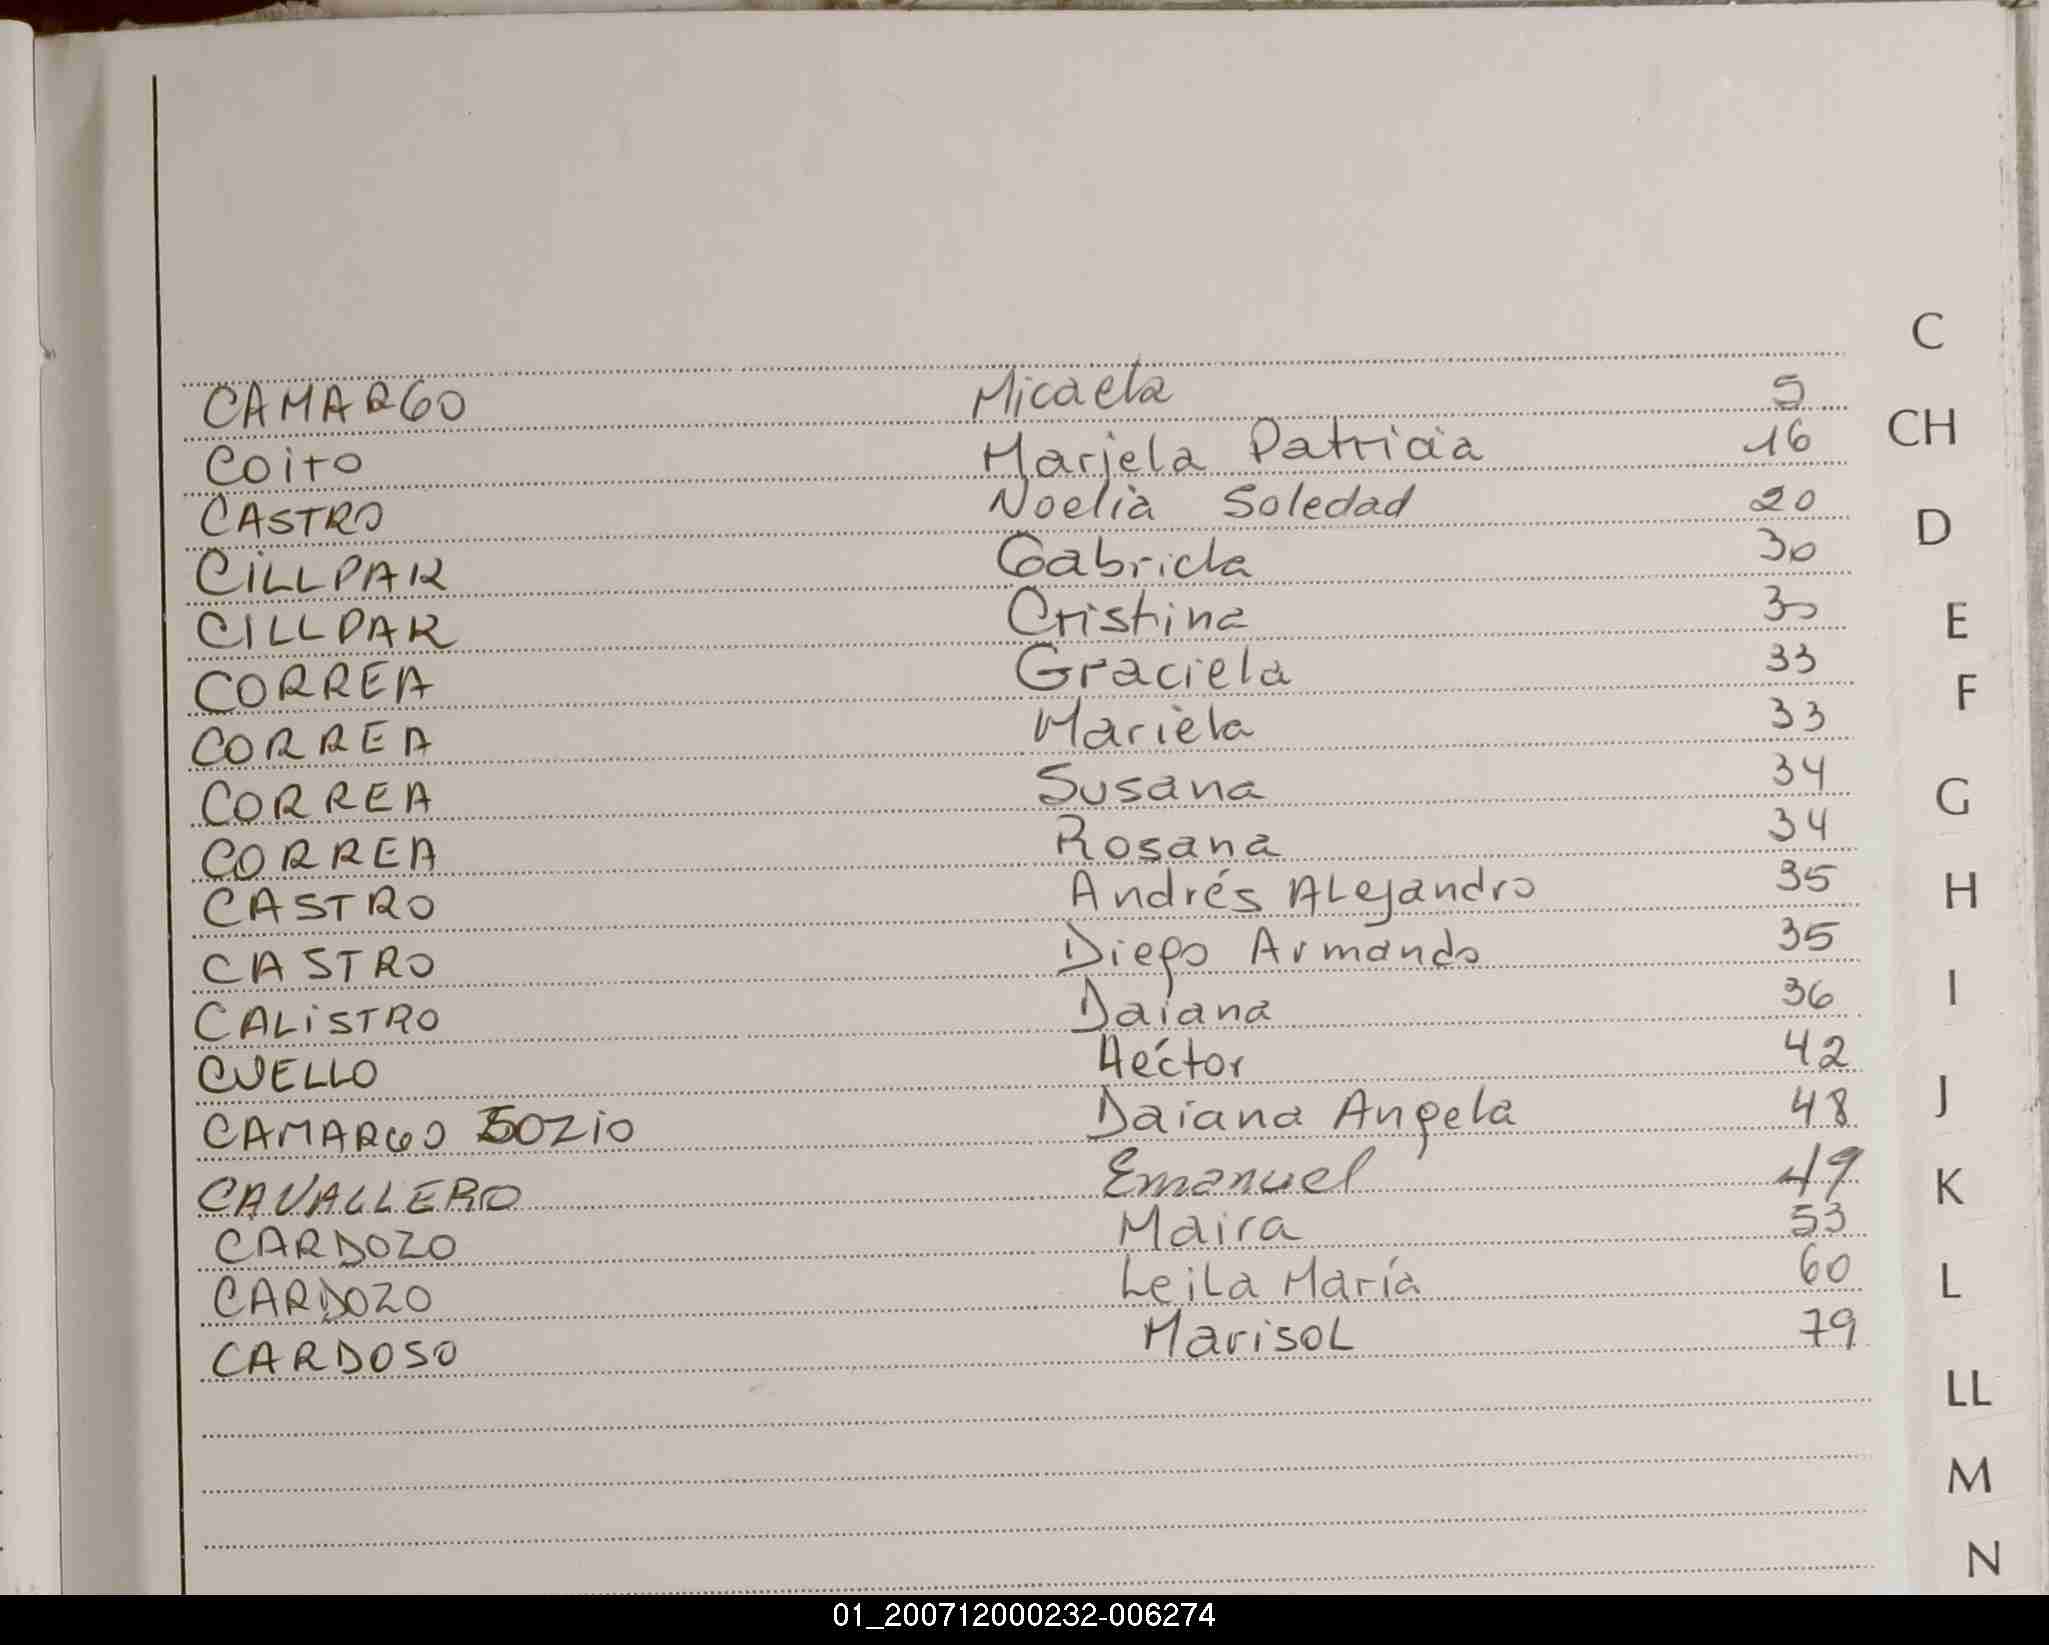 C
CAMARGO Micaela 5
CH
COITO Mariela Patricia 16
CASTRO Noelia Soledad 20
D
CILLPAR Gabriela 30
CILLPAR Cristina 30
E
CORREA Graciela 33
F
CORREA Mariela 33
CORREA Susana 34
G
CORREA Rosana 34
CASTRO Andrés Alejandro 35
H
CASTRO Diego Armando 35
CALISTRO Daiana 36
I
CUELLO Héctor 42
CAMARGO SOZIO Daiana Angela 48
J
CAVALLERO Emanuel 49
K
CARDOZO Maira 53
CARDOZO Leila María 60
L
CARDOSO Marisol 79
LL
M
N
01_200712000232-006274